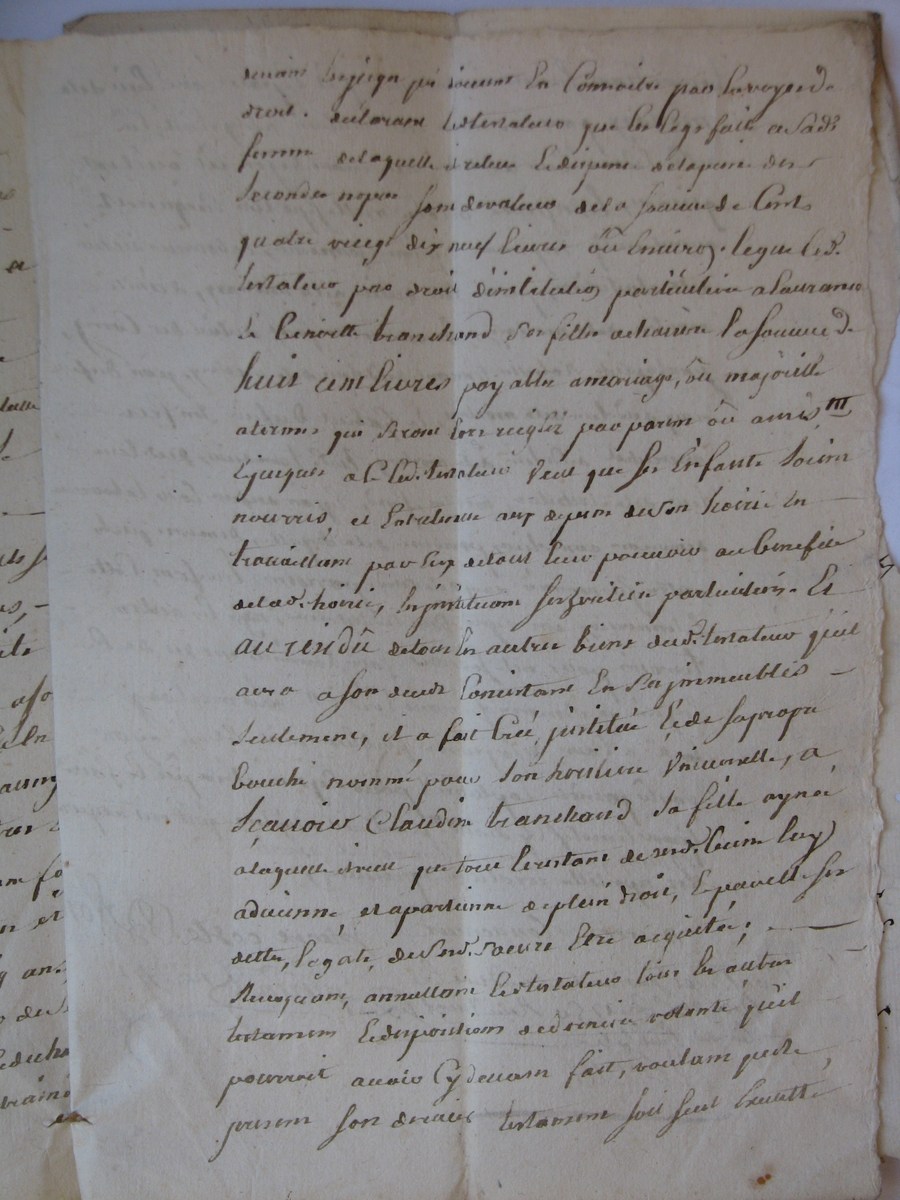 droit. declarant led testateur que les legs fait a sad.
femme de laquelle il releve et dispense de la peine des
secondes nopces sont de valeur de la somme de Cent
quatre vingt dix neuf livres ou environ. legue led.
testateur par droit d'institution particuliere a Laurance
et Benoitte tranchand ses filles a chacune la somme de
huit cent livres payables a mariage, ou majoritté
a termes qui seront lors reiglés par parens ou amis,
Et jusques a ce led. testateur veut que ses Enfants soient
nourris, et Entretenus aux depens de son hoirie en
travaillant par eux de tout leur pouvoir au benefice
de lad. hoirie, les instituant ses heritiers particuliers. Et
au residu de tous les autres biens dud. testateur qu'il
aura a son deces Consistant En ses immeubles
seulement, il a fait Créé, institué Et de sa propre
bouche nommé pour son heritiere Universelle, a
sçavoir Claudine tranchand sa fille aynée
a laquelle il veut que tout le restant de sesd. biens luy
advienne et apartienne de plein droit, Et payer ses
dettes, légats, de sesd. soeurs Etre acquitées,
Revoquant, annullant led testateur tous les autres
testamens Et dispositions de derniere volonté qu'il
pourroit avoir Cy devant fait, voulant que le
present son dernier testament soit seul Executté